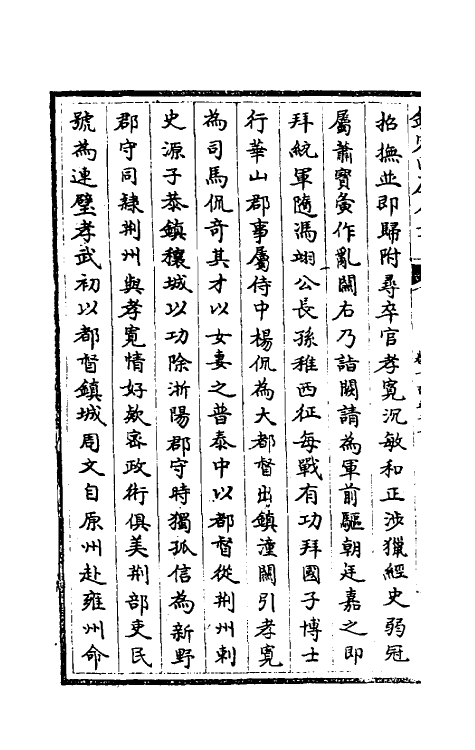 招撫並即歸附尋卒官孝寛沉敏和正涉獵經史弱冠
屬蕭寳夤作亂關右乃詣闕請為軍前驅朝廷嘉之即
拜統軍隨馮翊公長孫稚西征每戰有功拜國子博士
行華山郡事屬侍中楊侃為大都督出鎮潼闗引孝寛
為司馬侃奇其才以女妻之普泰中以都督從荆州刺
史源子恭鎮穰城以功除淅陽郡守時獨孤信為新野
郡守同隷荆州與孝寛情好欵密政術俱美荆部吏民
號為連璧孝武初以都督鎮城周文自原州赴雍州命